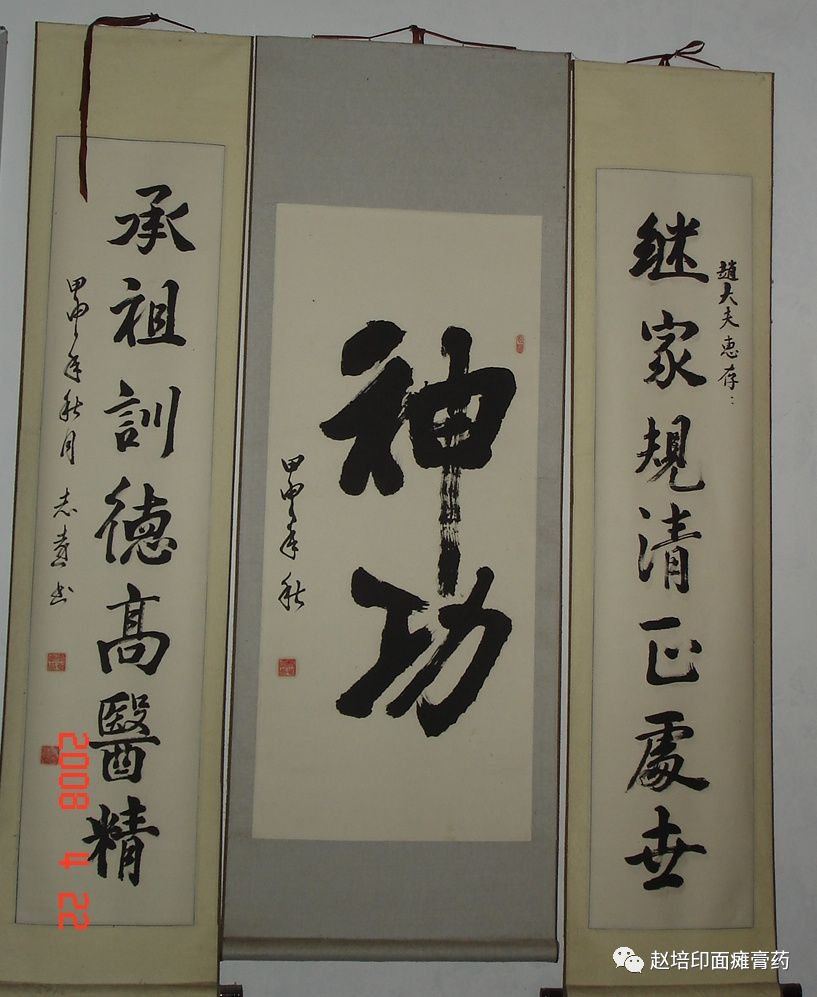 趙大夫惠存：
继家規清正處世
神功
甲申年秋
承祖訓德高醫精
甲申年秋月 志书
2008 4 22
赵培印面瘫膏药